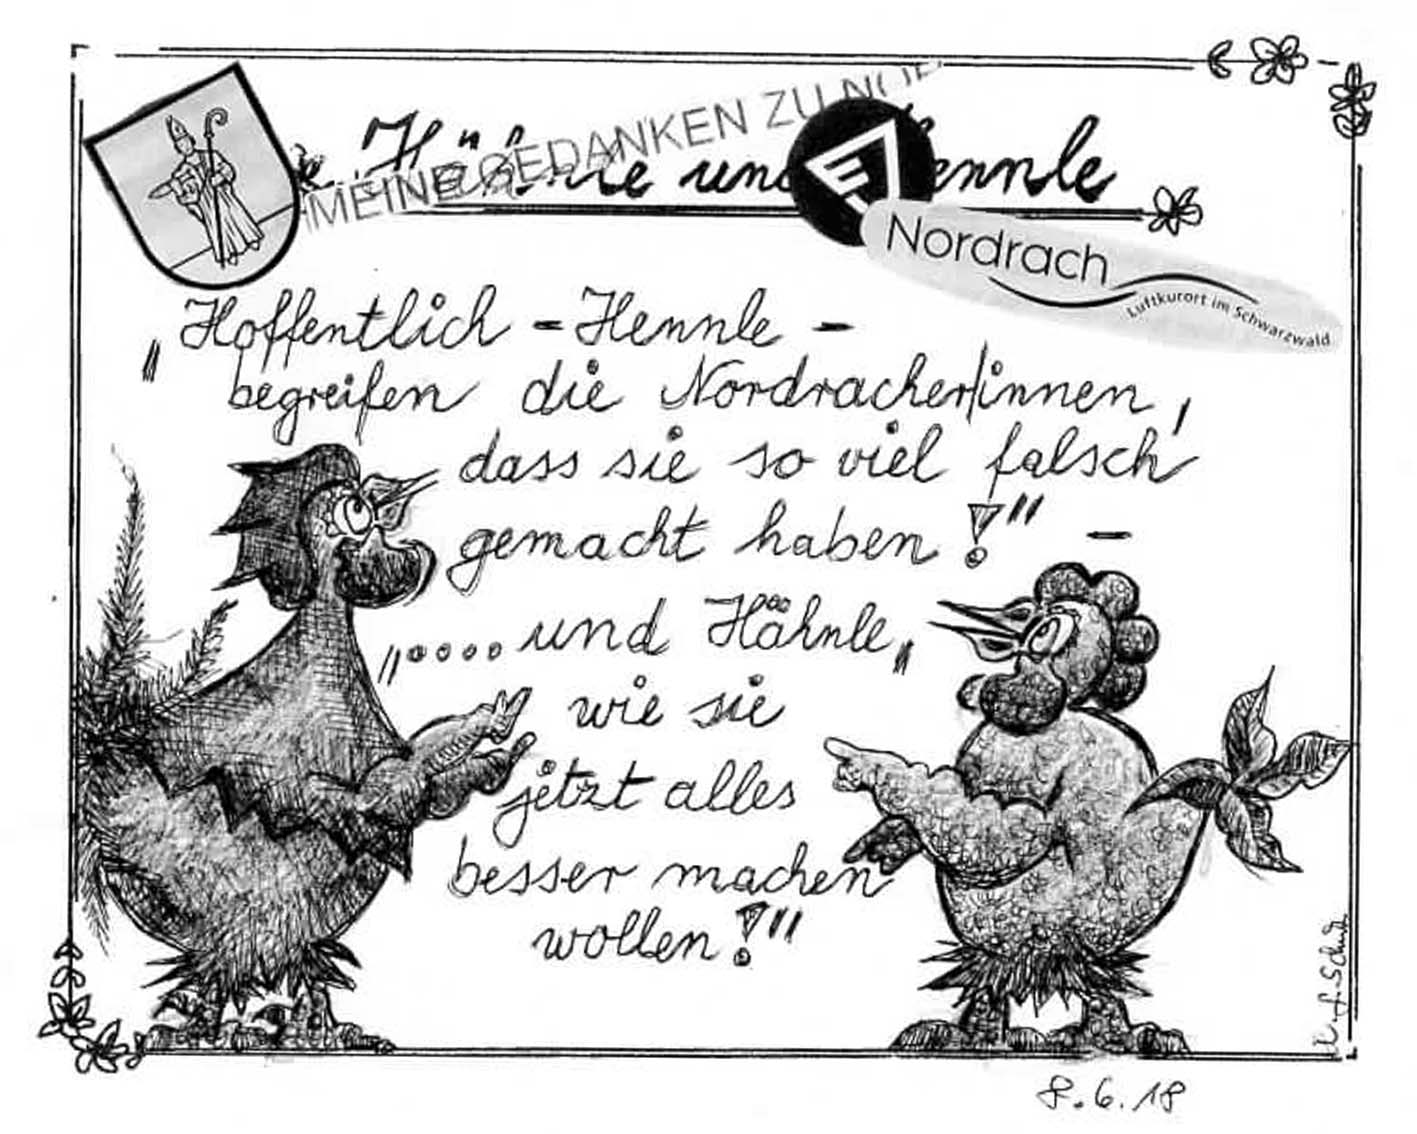 MEINE GEDANKEN ZU NOR
Hähnle und Hennle
Nordrach
Luftkurort im Schwarzwald
"Hoffentlich - Hennle -
begreifen die Nordracher/innen,
dass sie so viel falsch
gemacht haben!" -
"....und Hähnle,
wie sie
jetzt alles
besser machen
wollen!"
8.6.18